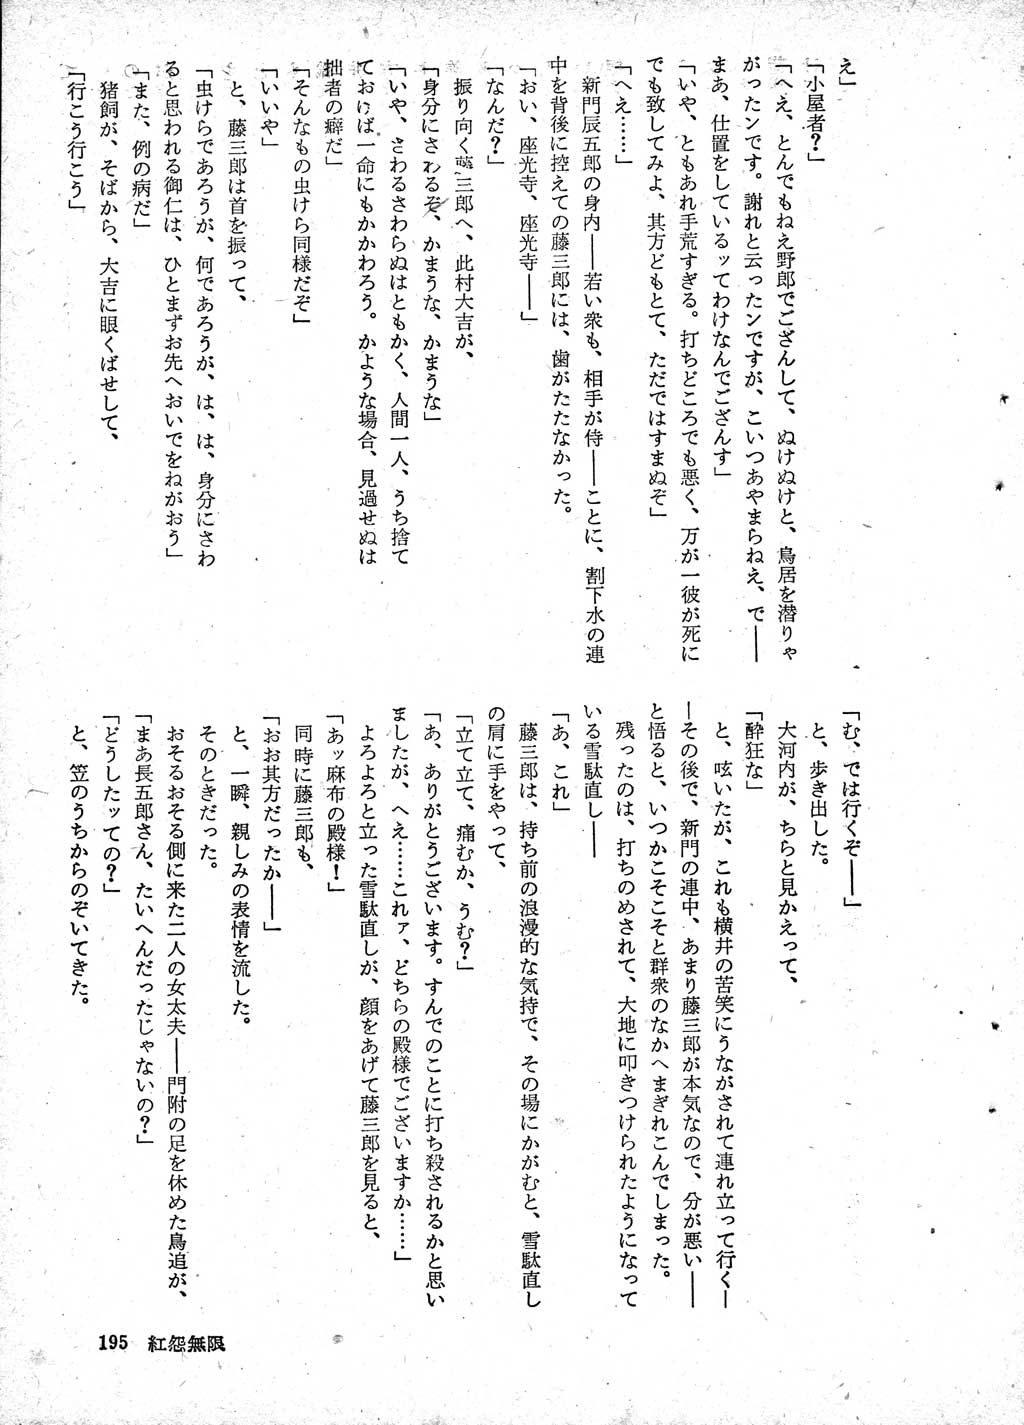 え」
「小屋者?」
「へえ、とんでもねえ野郎でござんして、ぬけぬけと、鳥居を潜りゃ
がったンです。謝れと云ったンですが、こいつあやまらねえ、で――
まあ、仕置をしているッてわけなんでござんす」
「いや、ともあれ手荒すぎる。打ちどころでも悪く、万が一彼が死に
でも致してみよ、其方どもとて、ただではすまぬぞ」
「へえ……」
新門辰五郎の身内――若い衆も、相手が侍――ことに、割下水の連
中を背後に控えての藤三郎には、歯がたたなかった。
「おい、座光寺、座光寺――」
「なんだ?」
振り向く藤三郎へ、此村大吉が、
「身分にさわるぞ、かまうな、かまうな」
「いや、さわるさわらぬはともかく、人間一人、うち捨て
ておけば一命にもかかわろう。かような場合、見過せぬは
拙者の癖だ」
「そんなもの虫けら同様だぞ」
「いいや」
と、藤三郎は首を振って、
「虫けらであろうが、何であろうが、は、は、身分にさわ
ると思われる御仁は、ひとまずお先へおいでをねがおう」
「また、例の病だ」
猪飼が、そばから、大吉に眼くばせして、
「行こう行こう」
「む、では行くぞ――」
と、歩き出した。
大河内が、ちらと見かえって、
「酔狂な」
と、呟いたが、これも横井の苦笑にうながされて連れ立って行く―
―その後で、新門の連中、あまり藤三郎が本気なので、分が悪い――
と悟ると、いつかこそこそと群衆のなかへまぎれこんでしまった。
残ったのは、打ちのめされて、大地に叩きつけられたようになって
いる雪駄直し――
「あ、これ」
藤三郎は、持ち前の浪漫的な気持で、その場にかがむと、雪駄直し
の肩に手をやって、
「立て立て、痛むか、うむ?」
「あ、ありがとうございます。すんでのことに打ち殺されるかと思い
ましたが、へえ……これァ、どちらの殿様でございますか……」
よろよろと立った雪駄直しが、顔をあげて藤三郎を見ると、
「あッ麻布の殿様!」
同時に藤三郎も、
「おお其方だったか――」
と、一瞬、親しみの表情を流した。
そのときだった。
おそるおそる側に来た二人の女太夫――門附の足を休めた鳥追が、
「まあ長五郎さん、たいへんだったじゃないの?」
「どうしたッての?」
と、笠のうちからのぞいてきた。
195 紅怨無限